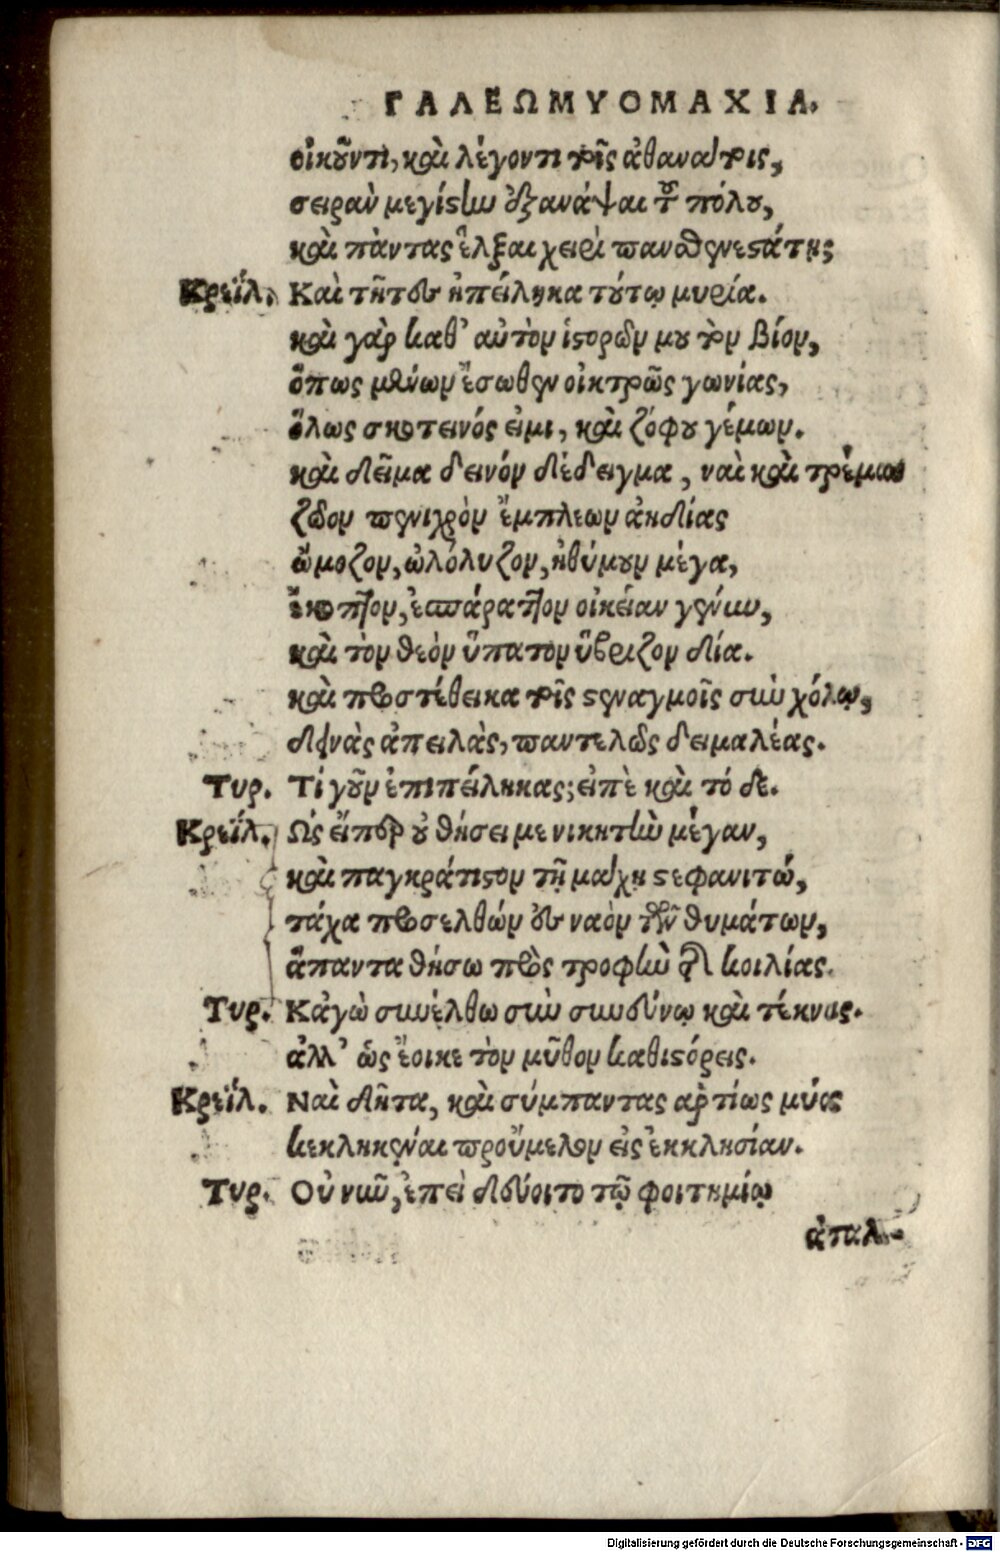 ΓΑΛΕΩΜΥΟΜΑΧΙΑ.
οἰκοῦντι, καὶ λέγοντι τοῖς ἀθανάτοις,
σειρὰν μεγίστην ἐξανάψαι τοῦ πόλου,
καὶ πάντας ἕλξαι χειρὶ πανσθενεστάτῃ;
Κρεΐλ. Καὶ τῆτον ἠπείληκα τούτῳ μυρία.
καὶ γὰρ καθ' αὑτὸν ἱστορῶν μου τὸν βίον,
ὅπως μένων ἔσωθεν οἰκτρῶς γωνίας,
ὅλως σκοτεινός εἰμι, καὶ ζόφου γέμων.
καὶ δεῖμα δεινόν δέδειγμα, ναὶ καὶ τρέμω
ζῶον πενιχρὸν ἔμπλεων ἀκηδίας
ᾤμοζον, ὠλόλυζον, ἠθύμουν μέγα,
ἔκοπτον, ἐσπάραττον οἰκείαν γένυν,
καὶ τὸν θεὸν ὕπατον ὕβριζον δία.
καὶ προστέθεικα τοῖς στεναγμοῖς σὺν χόλῳ,
δεινὰς ἀπειλὰς, παντελῶς δειμαλέας.
Τυρ. Τί γοῦν ἐπιπείληκας; εἰπὲ καὶ τό δε.
Κρεΐλ. Ὡς εἴπερ οὐ θήσει με νικητὴν μέγαν,
καὶ παγκράτιστον τῇ μάχῃ στεφανιτών,
τάχα προσελθών ἐν ναὸν τῶν θυμάτων,
ἅπαντα θήσω πρὸς τροφὴν τῆς κοιλίας.
Τυρ. Κἀγὼ συνέλθω σὺν συνεύνῳ καὶ τέκνοις.
ἀλλ' ὡς ἔοικε τὸν μῦθον καθιστόρεις.
Κρεΐλ. Ναὶ δῆτα, καὶ σύμπαντας ἀρτίως μύας
κεκληκέναι προὔμελον εἰς ἐκκλησίαν.
Τυρ. Οὐ νῦν, ἐπεὶ δεύοιτο τῷ φοιτημίῳ
ἀπαλ-
Digitalisierung gefördert durch die Deutsche Forschungsgemeinschaft - DFG